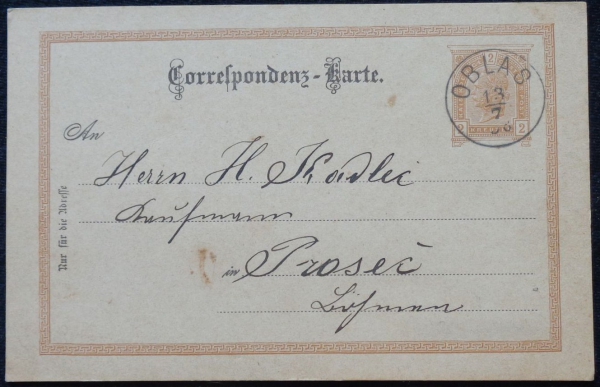 Correspondenz-Karte.
2
OBLAS
13
7
2
2
An
Herrn H. Kadlec
Kaufmann
in Proseč
Böhmen
Nur für die Adresse